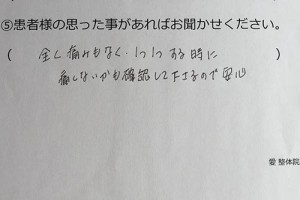 ⑤患者様の思った事があればお聞かせください。
( 全く痛みもなく、1つ1つする時に )
痛しないかも確認して下さるので安心
愛 整体院